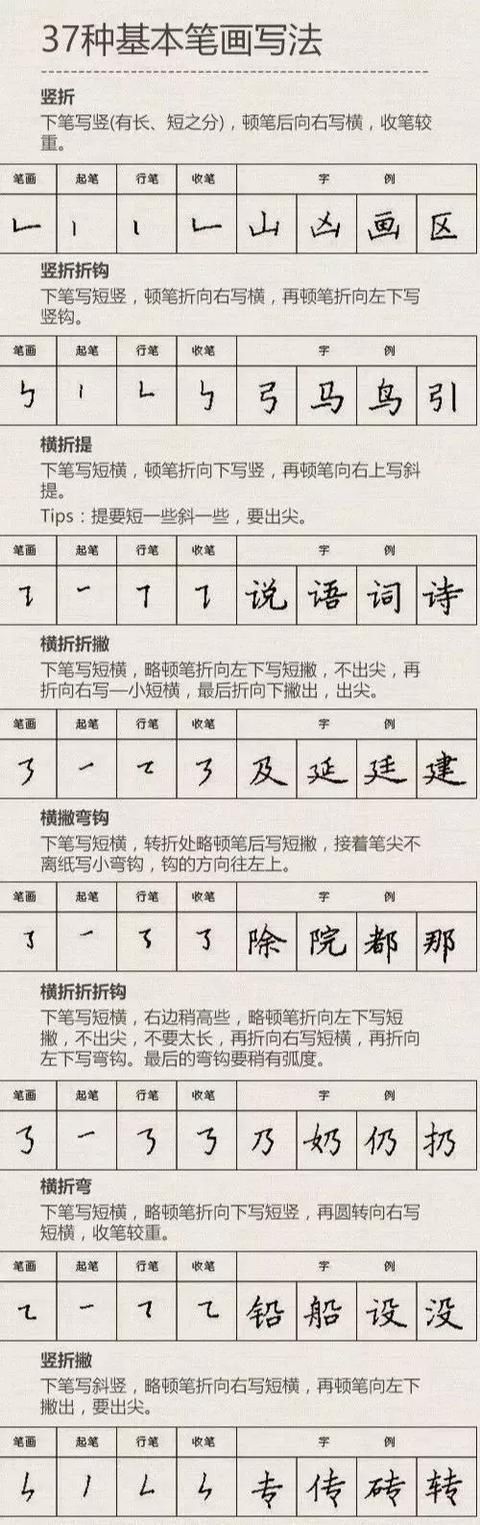 37种基本笔画写法
竖折
下笔写竖(有长、短之分)，顿笔后向右写横，收笔较
重。
笔画 起笔 行笔 收笔 字 例
山 凶 画 区
竖折折钩
下笔写短竖，顿笔折向右写横，再顿笔折向左下写
竖钩。
笔画 起笔 行笔 收笔 字 例
弓 马 鸟 引
横折提
下笔写短横，顿笔折向下写竖，再顿笔向右上写斜
提。
Tips：提要短一些斜一些，要出尖。
笔画 起笔 行笔 收笔 字 例
说 语 词 诗
横折折撇
下笔写短横，略顿笔折向左下写短撇，不出尖，再
折向右写一小短横，最后折向下撇出，出尖。
笔画 起笔 行笔 收笔 字 例
及 延 廷 建
横撇弯钩
下笔写短横，转折处略顿笔后写短撇，接着笔尖不
离纸写小弯钩，钩的方向往左上。
笔画 起笔 行笔 收笔 字 例
除 院 都 那
横折折折钩
下笔写短横，右边稍高些，略顿笔折向左下写短
撇，不出尖，不要太长，再折向右写短横，再折向
左下写弯钩。最后的弯钩要稍有弧度。
笔画 起笔 行笔 收笔 字 例
乃 奶 仍 扔
横折弯
下笔写短横，略顿笔折向下写短竖，再圆转向右写
短横，收笔较重。
笔画 起笔 行笔 收笔 字 例
铅 船 设 没
竖折撇
下笔写斜竖，略顿笔折向右写短横，再顿笔向左下
撇出，要出尖。
笔画 起笔 行笔 收笔 字 例
专 传 砖 转